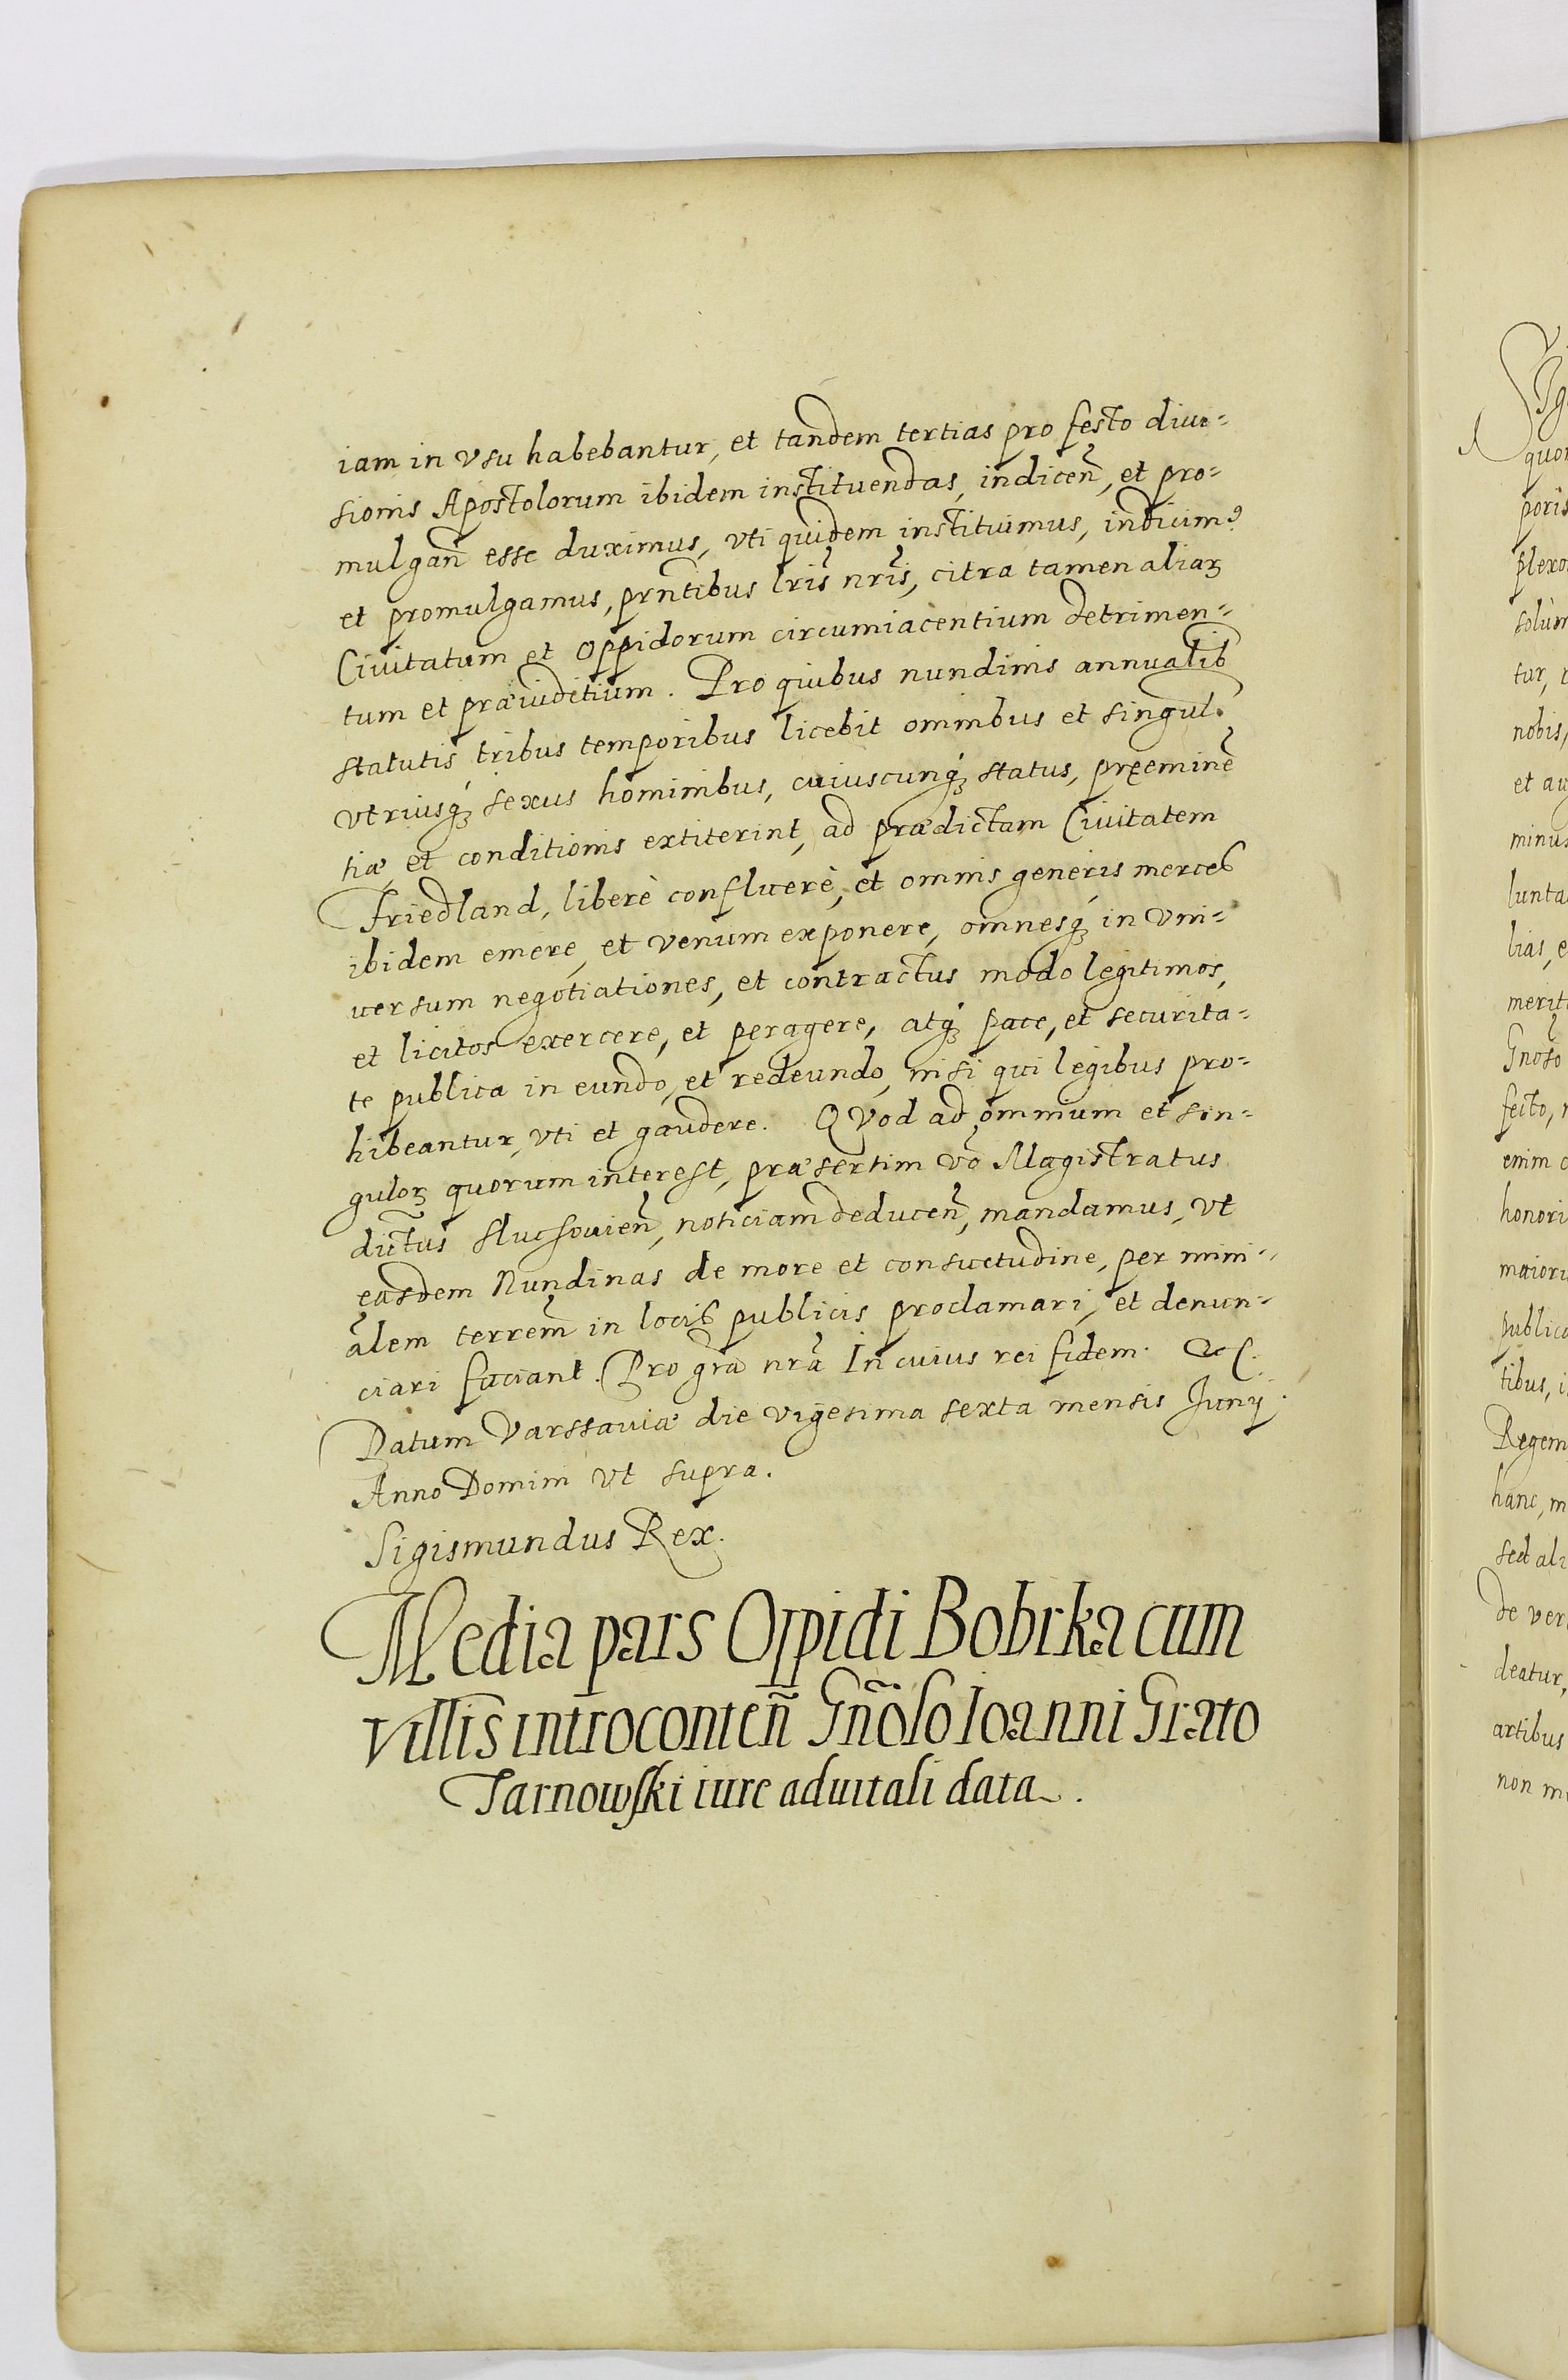 iam in vsu habebantur, et tandem tertias pro festo diui-
sionis Apostolorum ibidem instituendas, indicen̄, et pro-
mulgan̄ esse duximus, vti quidem instituimus, indicimꝰ
et promulgamus, prn̄tibus lr̄is nr̄is, citra tamen aliaꝝ
Ciuitatum et oppidorum circumiacentium detrimen-
tum et præiuditium. Pro quibus nundinis annualib
statutis tribus temporibus licebit omnibus et singul.
vtriusqꝫ sexus hominibus, cuiuscunqꝫ status, pręeminē
tiæ et conditionis extiterint, ad prædictam Ciuitatem
Friedland, liberè confluere, et omnis generis merces
ibidem emere, et venum exponere, omnesqꝫ in vni-
uersum negotiationes, et contractus modo legitimos,
et licitos exercere, et peragere, atqꝫ pace, et securita-
te publica in eundo, et redeundo, nisi qui legibus pro-
hibeantur, vti et gaudere. Quod ad omnium et sin-
guloꝝ quorum interest, præsertim vō Magistratus
dictus Slucsouien̄, noticiam deducen̄, mandamus, vt
easdem Nundinas de more et consuetudine, per mini-
ālem terrem̄ in locis publicis proclamari, et denun-
ciari faciant. Pro grā nrā In cuius rei fidem. &c.
Datum Varssauiæ die vigesima sexta mensis Junij.
Anno Domini vt supra.
Sigismundus Rex.
Media pars Oppidi Bobrka cum
villis introconten̄ Gn̄oso Ioanni Grato
Tarnowski iure aduitali data.
quo
poris
plexo
solum
tur,
nobis,
et au
minus
lunta
lias, e
merit
Gnōso
fecto,
enim
honori
maiori
publica
tibus, i
Regem
hanc, m
sed ali
de ver
deatur,
artibus
non m